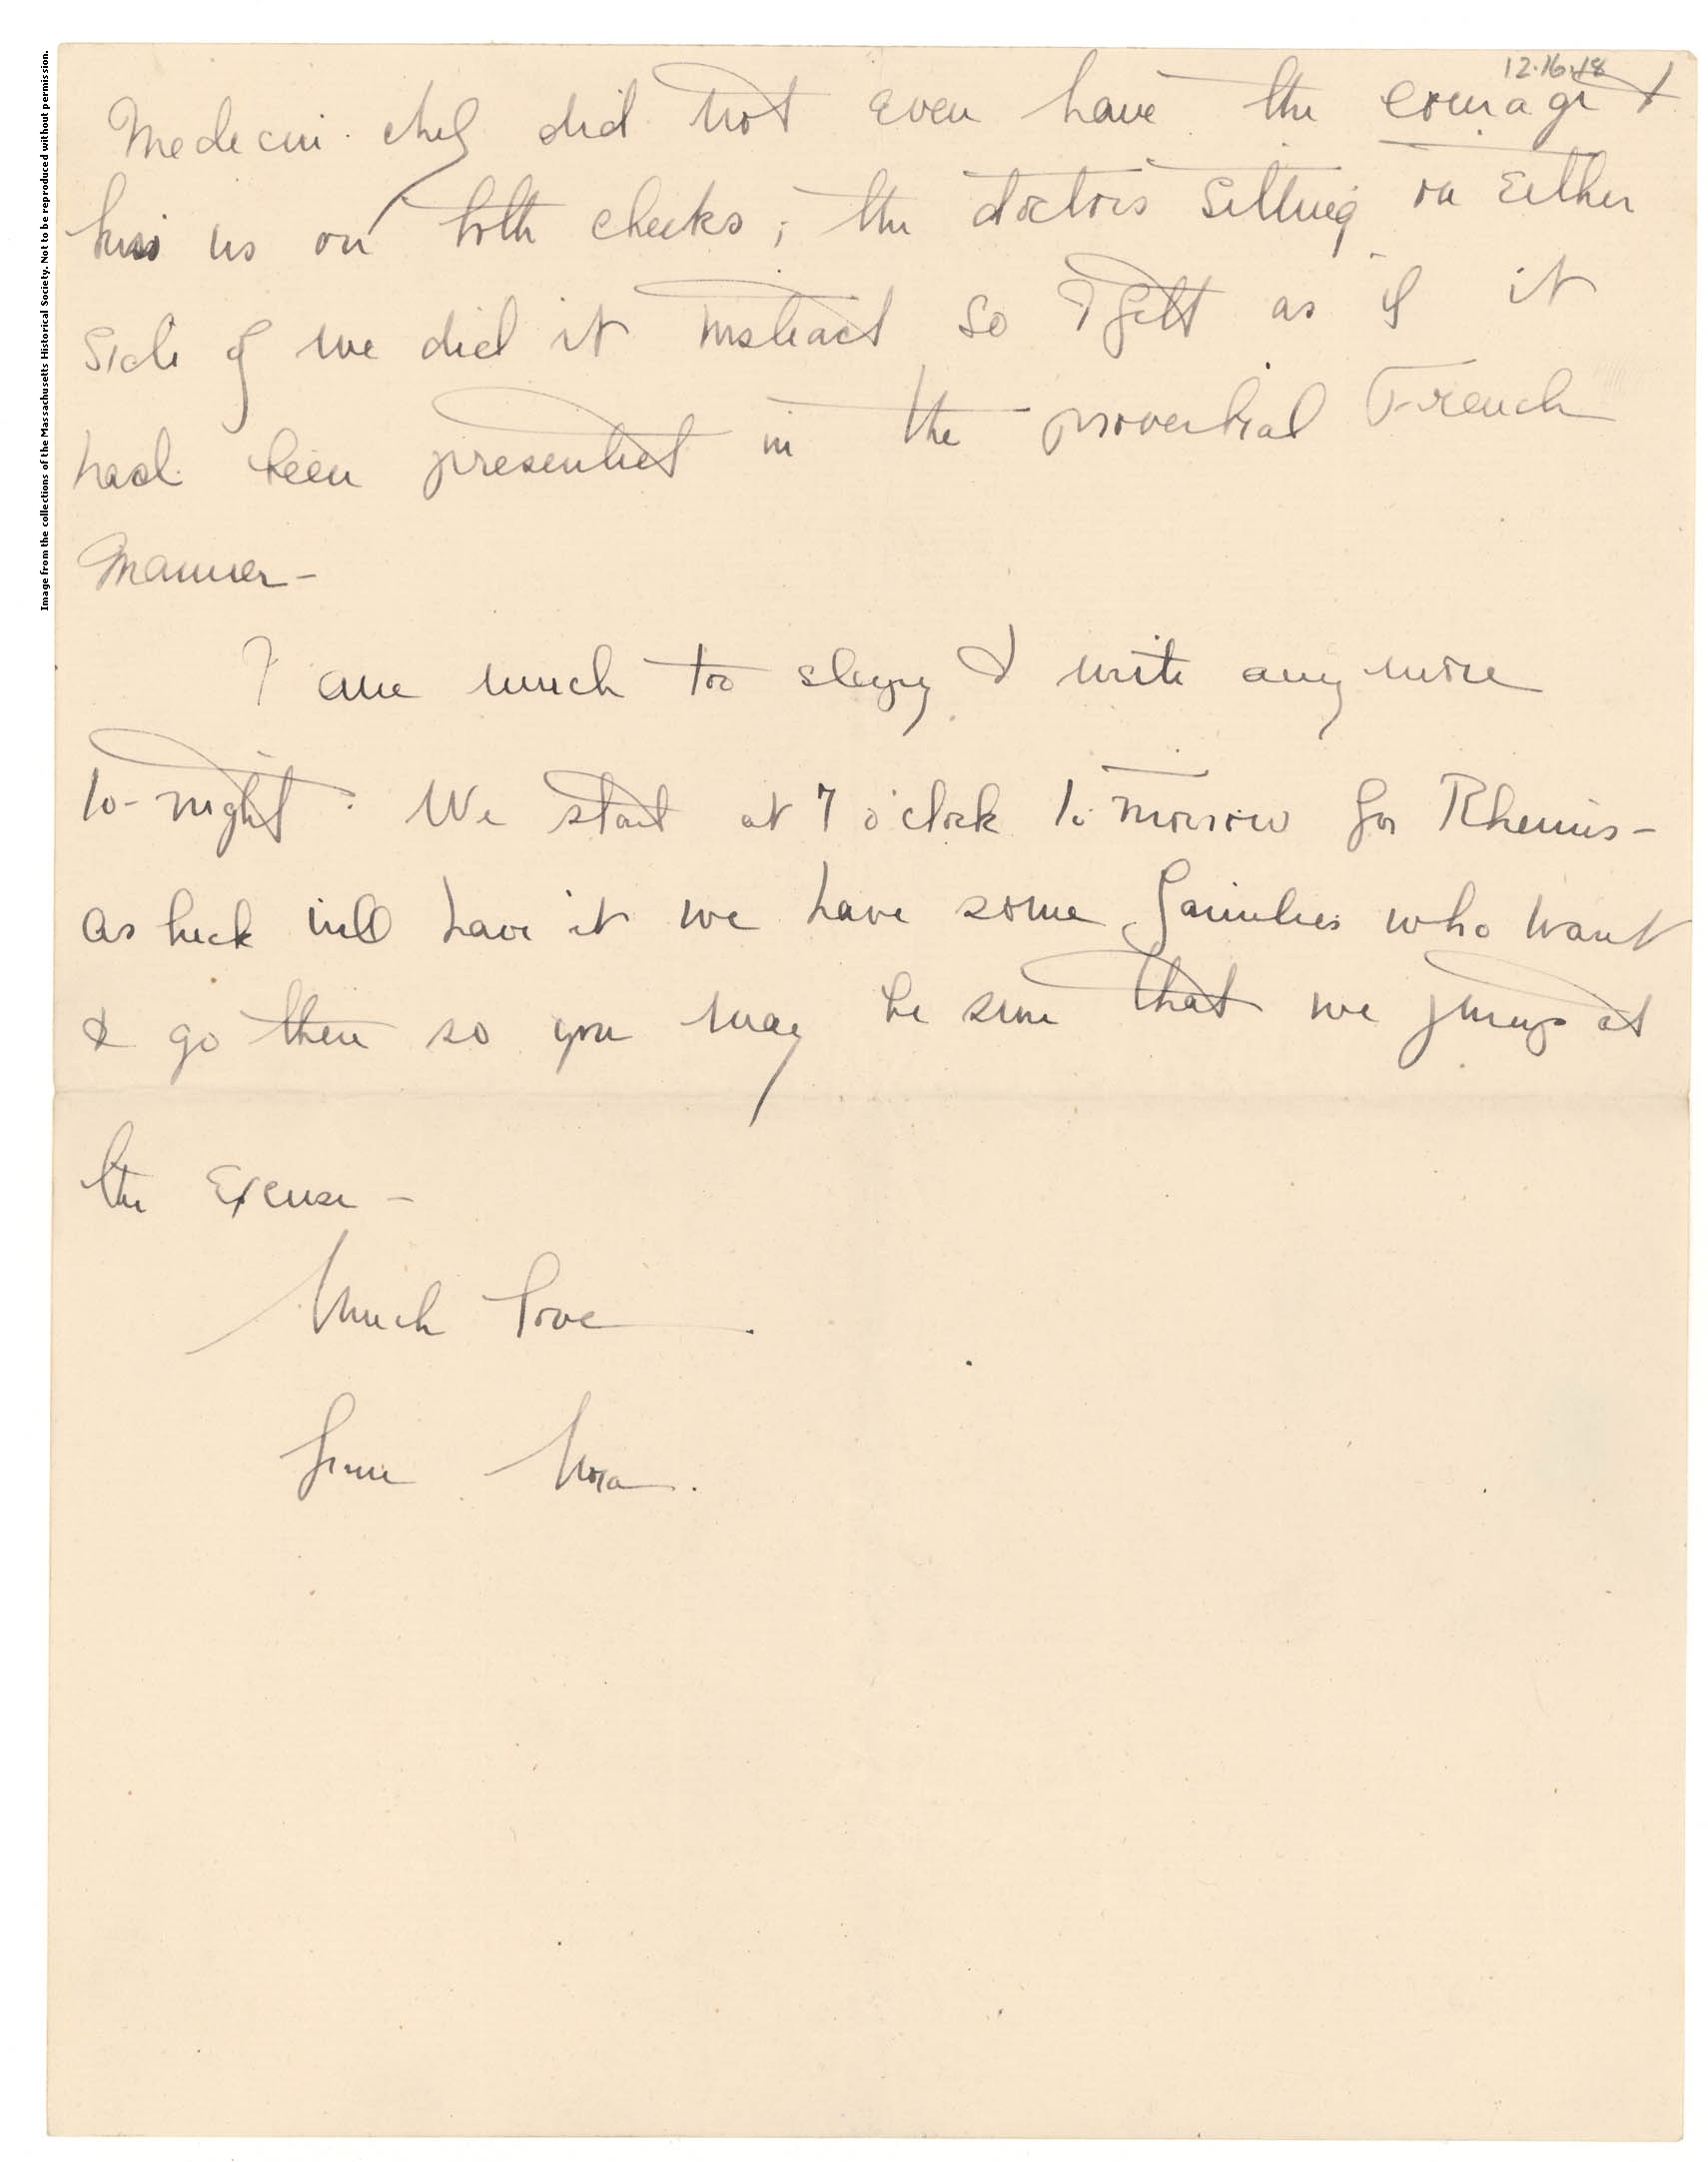 12.16.18
Medecin chef did not even have the courage to
kiss us on both cheeks; the doctors sitting on either
side of me did it instead so I felt as if it
had been presented in the proverbial French
manner -
I am much too sleepy to write any more
to-night. We start at 7 o'clock to morrow for Rheims -
As luck will have it we have some families who want
to go there so you may be sure that we jump at
the excuse -
Much love
from Nora.
Image from the collections of the Massachusetts Historical Society. Not to be reproduced without permission.